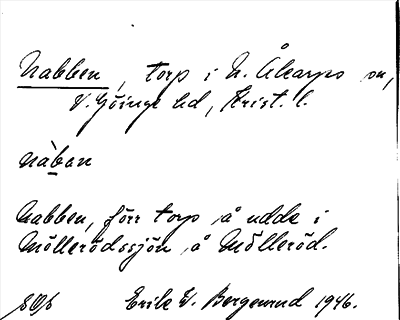 Nabben, torp i N. Åkarps sn,
V. Göinge hd, Krist. l.
nàban
Nabben, förr torp å udde i
Möllerödssjön å Mölleröd.
Erik W. Bergenrud 1946.